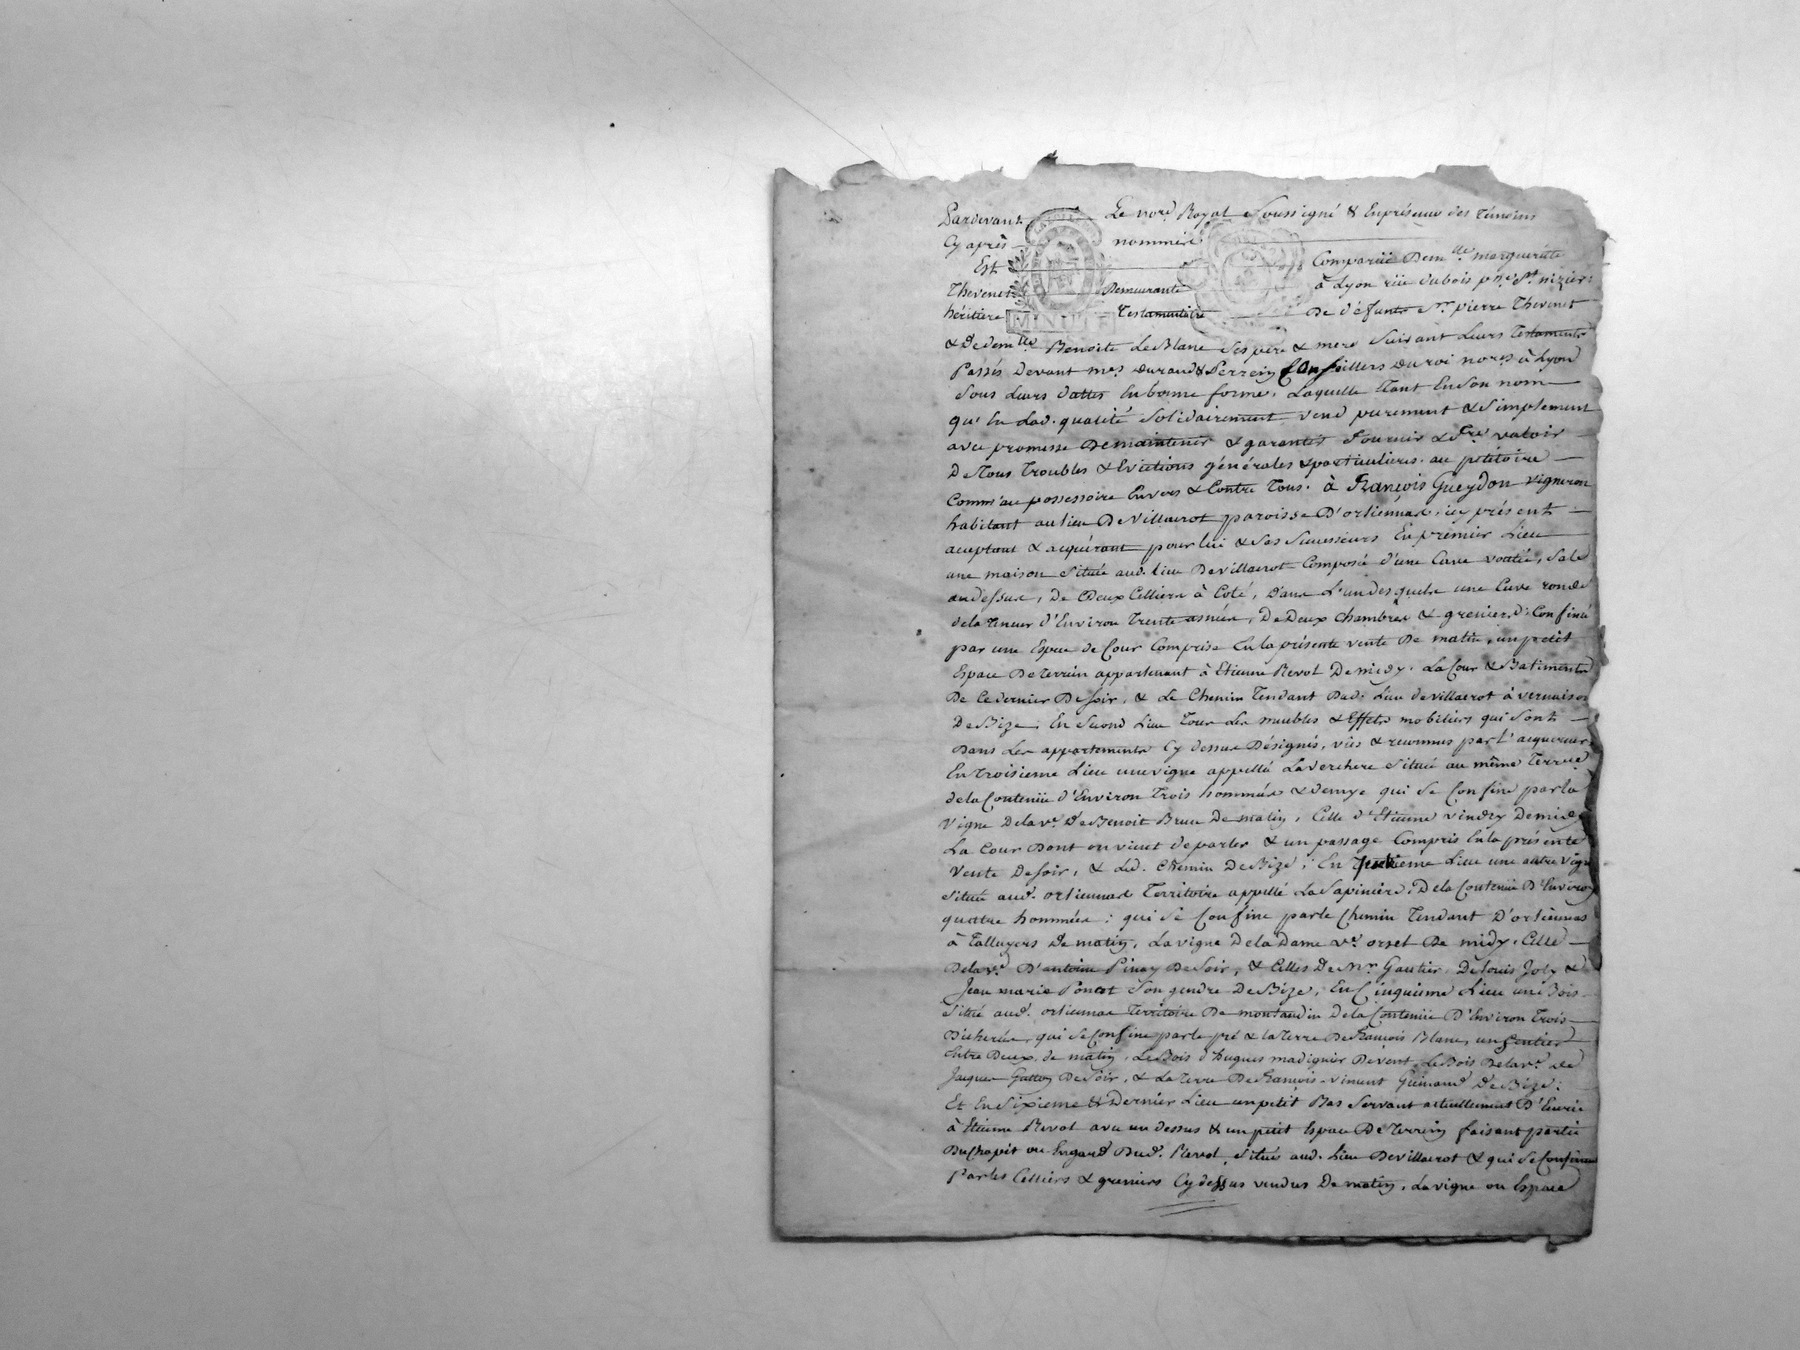 Pardevant Le nore Royal Soussigné & En présence des témoins
Cy après nommés
Est Comparüe Demlle marguerite
Thevenet Demeurante à Lyon rüe dubois psse St nizier
héritiere Testamentaire De défunts Sr pierre Thevenet
& de demlle Benoite Le Blanc ses pere & mere suivant Leurs Testaments
Passés Devant mes Durand & Perrein Conseillers du roi nores à Lyon
Sous Leurs dattes En bonne forme, Laquelle Tant En son nom
qu'en Lad. qualité Solidairement vend purement & simplement
avec promesse De maintenir & garantir Fournir & Fre valoir
De Tous Troubles & Evictions générales & particulieres au petitoire
Comm'au possessoire Envers & Contre Tous. à François Gueydon Vigneron
habitant au lieu De Villacrot paroisse D'orliennas, icy présent
acceptant & acquérant pour lui & Ses Successeurs En premier Lieu
une maison située aud. lieu De villacrot Composée d'une Cave voutée, Sale
audessus, De Deux Celliers à Coté, Dans L'un desquels une Cuve ronde
dela Teneur d'Environ Trente asnées, De Deux chambres & greniers, Confinée
par une Espece de Cour Comprise En la présente vente De matin, un petit
Espace De terrein appartenant à Etienne Revol De midy. La Cour & Batiments
De Ce dernier De soir, & Le Chemin Tendant Dud. Lieu de villacrot à vernaison
De Bize, En Second Lieu Tous Les meubles & Effets mobiliers qui sont
Dans Les appartements Cy dessus Désignés, vûs & reconnus par L'acquereur
En troisieme Lieu une vigne appellée La verchere Située au même Terroir
de la Contenüe d'Environ Trois hommées & demye qui se Confine par la
Vigne De la ve de Benoit Brun De matin, Celle d'Etienne vindry De midy
La Cour Dont on vient de parler & un passage Compris En la présente
Vente De soir, & Led. chemin De Bize; En Lieu une autre vigne
Située aud. orliennas Territoire appellé La Sapiniere, De la Contenüe D'Environ
quatre hommées: qui se Confine par le Chemin Tendant D'orliennas
à Talluyers De matin, La vigne De la Dame ve orsel De midy, Celle
De la ve D'antoine Pinay De Soir, & Celles De Mr Gautier, De Louis Joly &
Jean marie Poncet Son gendre De Bize, En Cinquieme Lieu un Bois
Situé aud. orliennas Territoire De montaudin De la Contenüe D'Environ Trois
Bicherées, qui se Confine par le pré & la Terre De François Blanc, un Sentier
Entre Deux, de matin, Le Bois d'hugues madignier De vent, Le Bois De la ve de
Jaques Gutton De Soir, & La Terre De François vincent Guinand De Bize;
Et En Sixieme & Dernier Lieu un petit Bas Servant actuellement D'Ecurie
à Etienne Revol avec un dessus & un petit Espace De Terrein faisant partie
Du Chapit ou hngard Dud. Revol, situé aud. Lieu De villacrot & qui se Confine
Par les Celliers & greniers Cy dessus vendus De matin, La vigne ou Espace
MINUTE